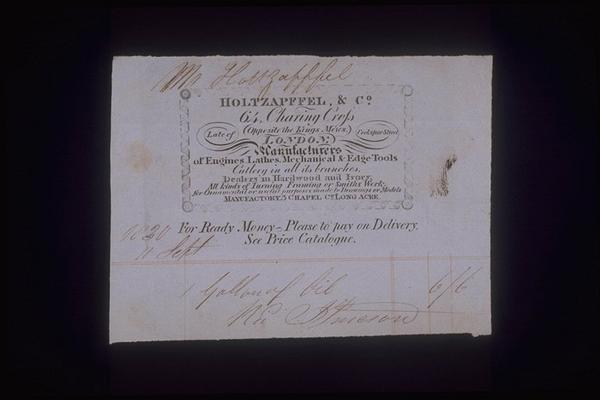 Mr Holtzapffel
HOLTZAPFFEL, & Co.
64, Charing Cross
(Opposite the Kings Mews.)
Late of
Cockspur Street
LONDON;
Manufacturers
of Engines Lathes, Mechanical & Edge Tools
Cutlery in all its branches,
Dealers in Hardwood and Ivory,
All kinds of Turning Framing or Smiths Work,
for Ornamental or useful purposes made to Drawings or Models
MANUFACTORY, CHAPEL Ct. LONG ACRE.
For Ready Money – Please to pay on Delivery.
See Price Catalogue.
Sept
1 Gallon of Oil 6/6